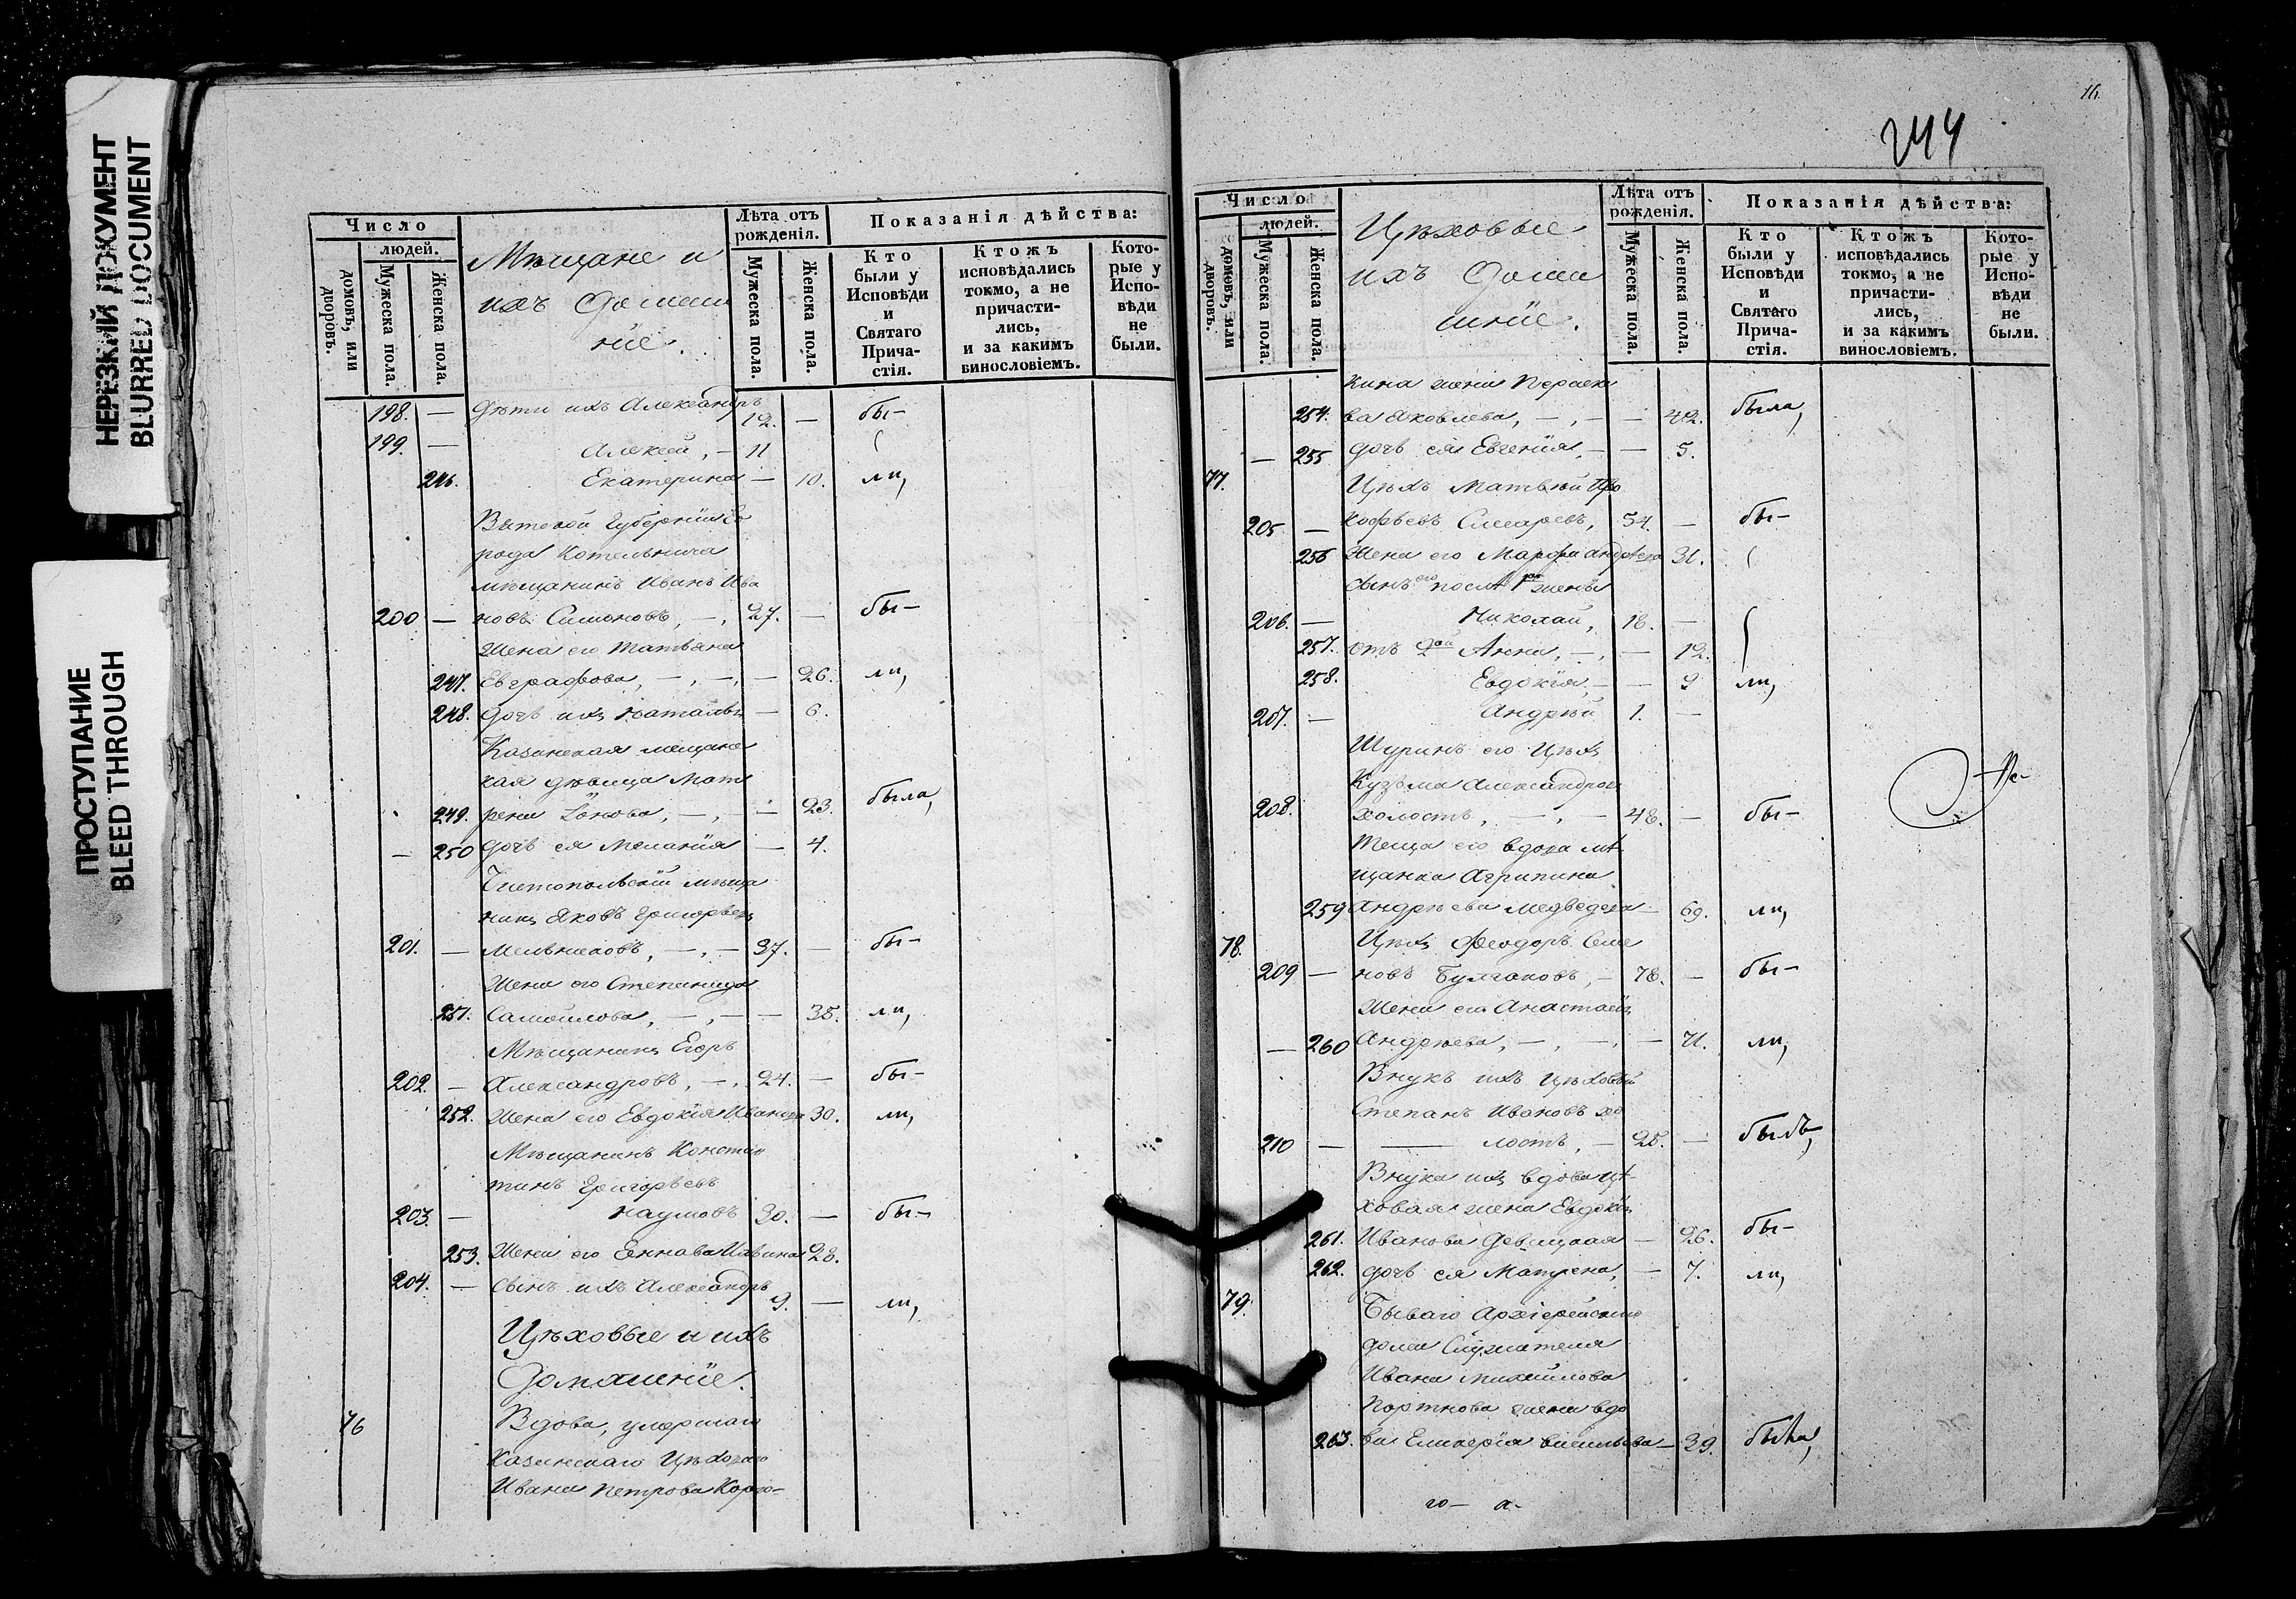 НЕРЕЗКИЙ ДОКУМЕНТ
BLURRED DOCUMENT
ПРОСТУПАНИЕ
BLEED THROUGH
Число
людей.
домовъ, или дворовъ.
Мужеска пола.
Женска пола.
Мѣщане и
ихъ Домаш
ніе.
Лѣта отъ рожденія.
Мужеска пола.
Женска пола.
Показанія дѣйства:
Кто были у Исповѣди и Святаго Прича-стія.
Ктожъ исповѣдались токмо, а не причасти-лись, и за какимъ винословіемъ.
Кото-рые у Испо-вѣди не были.
198. — Дѣти ихъ Александръ 12. — бы-
199. — Алексей, — 11
246. Екатерина — 10. ли,
Вятской Губерніи Го
рода Котельнича
мѣщанинъ Иванъ Ива
200 — новъ Симоновъ, —, 27. — бы-
Жена его Татьяна
247. Евграфова, —, —, — 26. ли,
248. Дочь ихъ Наталья — 6.
Казанская мещанс
кая дѣвица Мат
249. рена Іонова, —, — — 23. была,
— 250 Дочь ея Меланія — 4.
Чистопольскій мѣща
нинъ Яковъ Григорьевъ
201. — Мельниковъ, —, — 37. — бы-
Жена его Степанида
251. Самойлова, —, — — 35. ли,
Мѣщанинъ Егоръ
202. — Александровъ, —, 24. — бы-
252. Жена его Евдокія Иванова 30. ли,
Мѣщанинъ Констан
тинъ Григорьевъ
203. — Наумовъ 30. — бы-
253. Жена его 28.
204. — Сынъ ихъ Александръ 9. — ли,
Цѣховые и ихъ
Домашніе.
76 Вдова, умершаго
Казанскаго Цѣховаго
Ивана Петрова
16.
244
Число
людей.
домовъ, или дворовъ.
Мужеска пола.
Женска пола.
Цѣховые
ихъ Дома
шніе.
Лѣта отъ рожденія.
Мужеска пола.
Женска пола.
Показанія дѣйства:
Кто были у Исповѣди и Святаго Прича-стія.
Ктожъ исповѣдались токмо, а не причасти-лись, и за какимъ винословіемъ.
Кото-рые у Испо-вѣди не были.
кина жена Параске
254. ва Яковлева, —, — — 42. была,
— 255 дочь ея Евгенія, — — 5.
77. Цѣхъ Матвѣй Про
205 — кофьевъ 54. — бы-
256 Жена его Марфа Андреева 31.
Сынъ его послѣ 1ой жены
206. — Николай, 18. —
257. отъ 2ой Анна, —, — 12.
258. Евдокія, — — 9 ли,
207. — Андрей 1. —
Шуринъ его Цѣхъ
Кузьма Александровъ
208. холостъ, —, — 48. — бы-
Теща его вдова мѣ
щанка Агрипина
259 Андреева Медведева — 69. ли,
78. Цѣхъ Феодоръ Семе
209 — новъ Булгаковъ, — 78. — бы-
Жена его Анастасія
— 260 Андреева, —, —, — 71. ли,
Внукъ ихъ Цѣховый
Степанъ Ивановъ хо
210 — — лостъ, — 25. — былъ,
Внука ихъ вдова цѣ
ховая жена Евдокія
261. Иванова — 26. бы-
262. дочь ея Матрена, — 7. ли,
79. Бывшаго Архіерейскаго
дома Служителя
Ивана Михайлова
Портнова жена вдо
263. ва Васильева — 39. была,